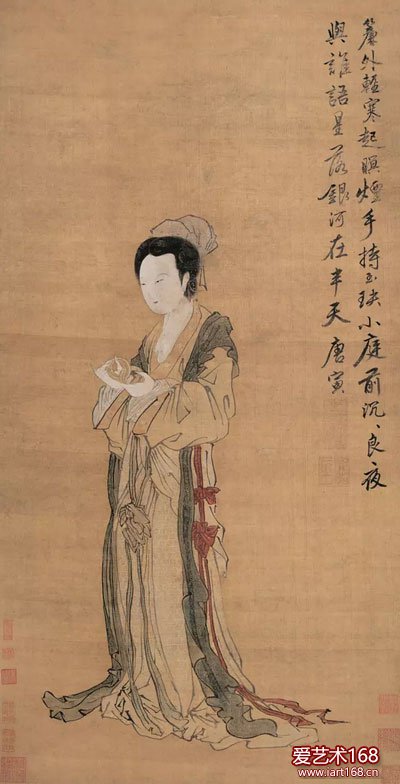 簾外輕寒起暝煙手持玉玦小庭前沉、良夜
與誰語星落銀河在半天唐寅
爱艺术168
www.iart168.cn